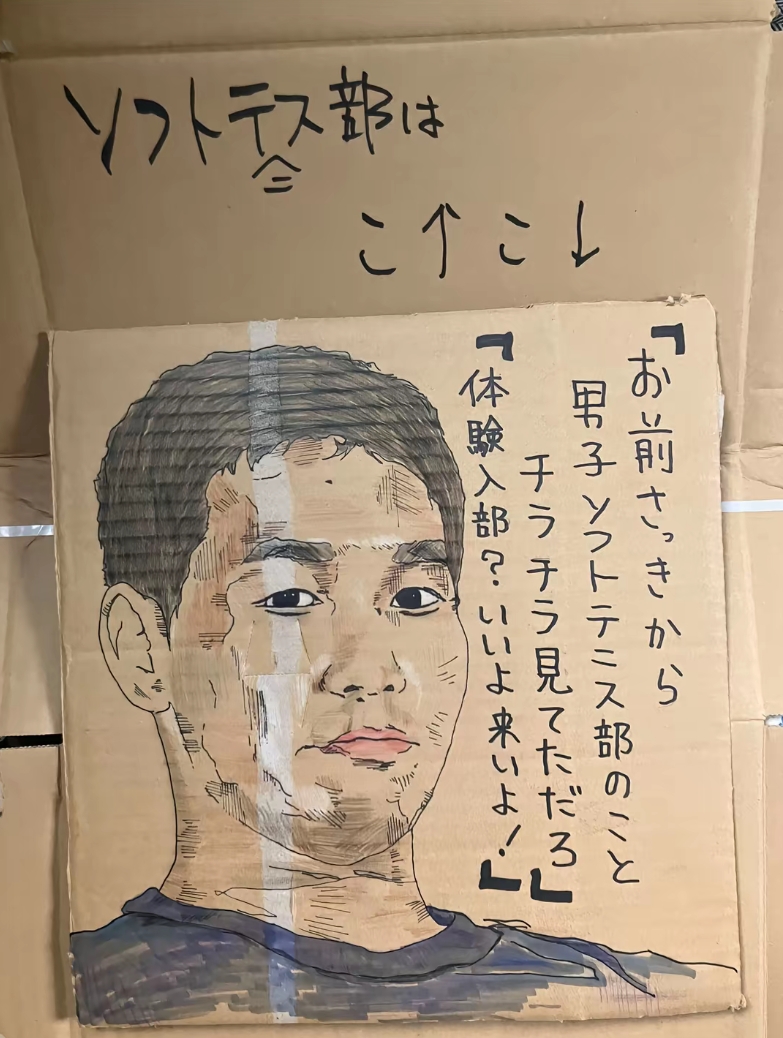 ソフトテス部は
ニ
こ↑こ↓
『お前さっきから
男子ソフトテニス部のこと
チラチラ見てただろ』
『体験入部?いいよ来いよ!』